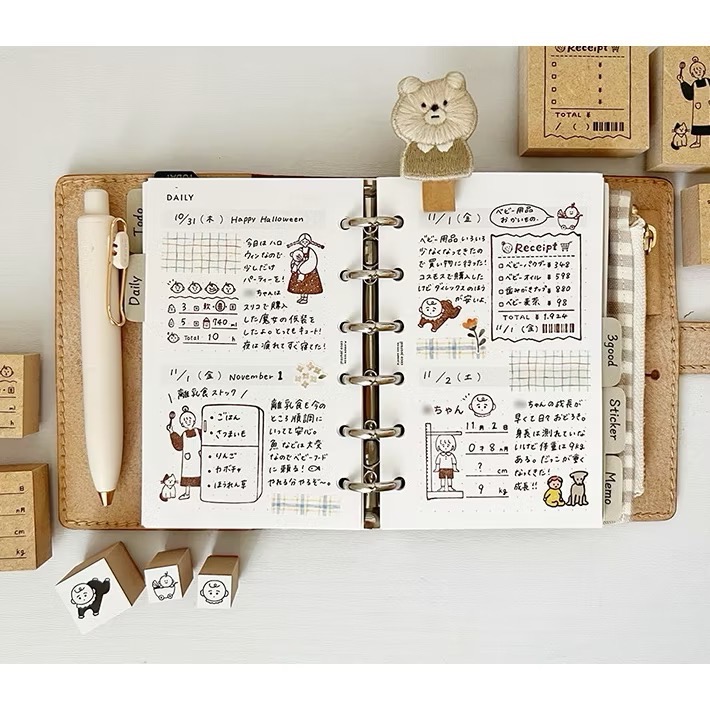 DAILY
10/31 (木) Happy Halloween
今日はハロ
ウィンなので
少しだけ
パーティーを!
ちゃんは
スリコで購入
した魔女の仮装を
したよ。とってもキュート!
夜は疲れてすぐ寝てた!
3 回
5 回 740 ml
Total 10 h
11/1 (金) November 1
離乳食ストック
・ごはん
・さつまいも
・りんご
・カボチャ
・ほうれん草
離乳食も今の
ところ順調に
いってて安心。
魚などは大変
なのでベビーフード
に頼る!
やれる分やるぞ〜。
11/1 (金)
ベビー用品
おかいもの.
ベビー用品いろいろ
少なくなってきたの
で買い物に行った!
コスモスで購入した
けどダイレックスのほう
が安いよ。
Receipt
ベビーパウダー ¥348
ベビーオイル ¥598
歯みがきナップ ¥880
ベビー麦茶 ¥98
TOTAL ¥1.924
11/1 (金)
11/2 (土)
ちゃん
11月2日
0才8ヵ月
? cm
9 kg
ちゃんの成長が
早くて日々おどろき。
身長は測れていな
いけど体重は9kg
ある。だっこが重く
なってきた!
成長!!
Todo
Daily
3good
Sticker
Memo
Receipt
¥
¥
¥
¥
TOTAL ¥
/ ( )
日
ヵ月
cm
kg